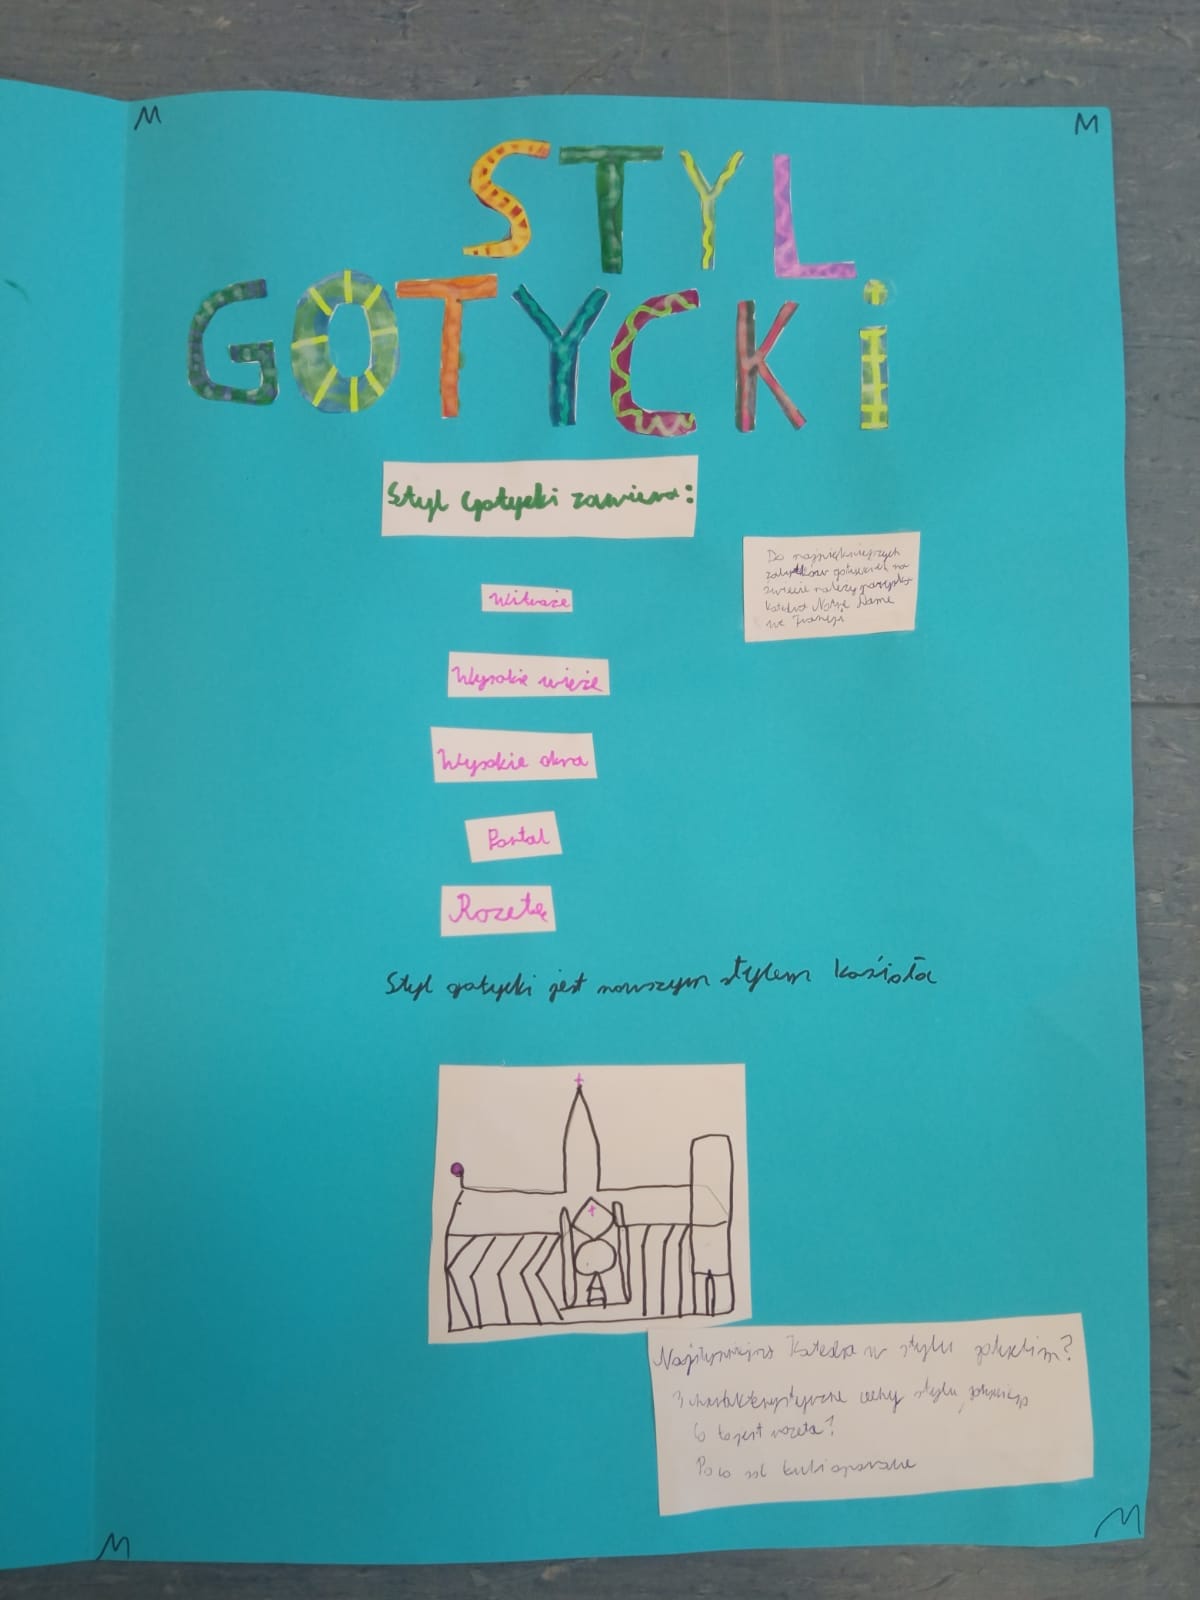 M
M
STYL
GOTYCKi
Styl Gotycki zawiera:
Do najpiękniejszych
zabytków gotyckich na
świecie należy paryska
katedra Notre Dame
we Francji
Witraże
Wysokie wieże
Wysokie okna
Portal
Rozetę
Styl gotycki jest nowszym stylem kościoła
Najsłynniejsza Katedra w stylu gotyckim?
3 charakterystyczne cechy stylu gotyckiego
Co to jest rozeta?
Po co są
M
M